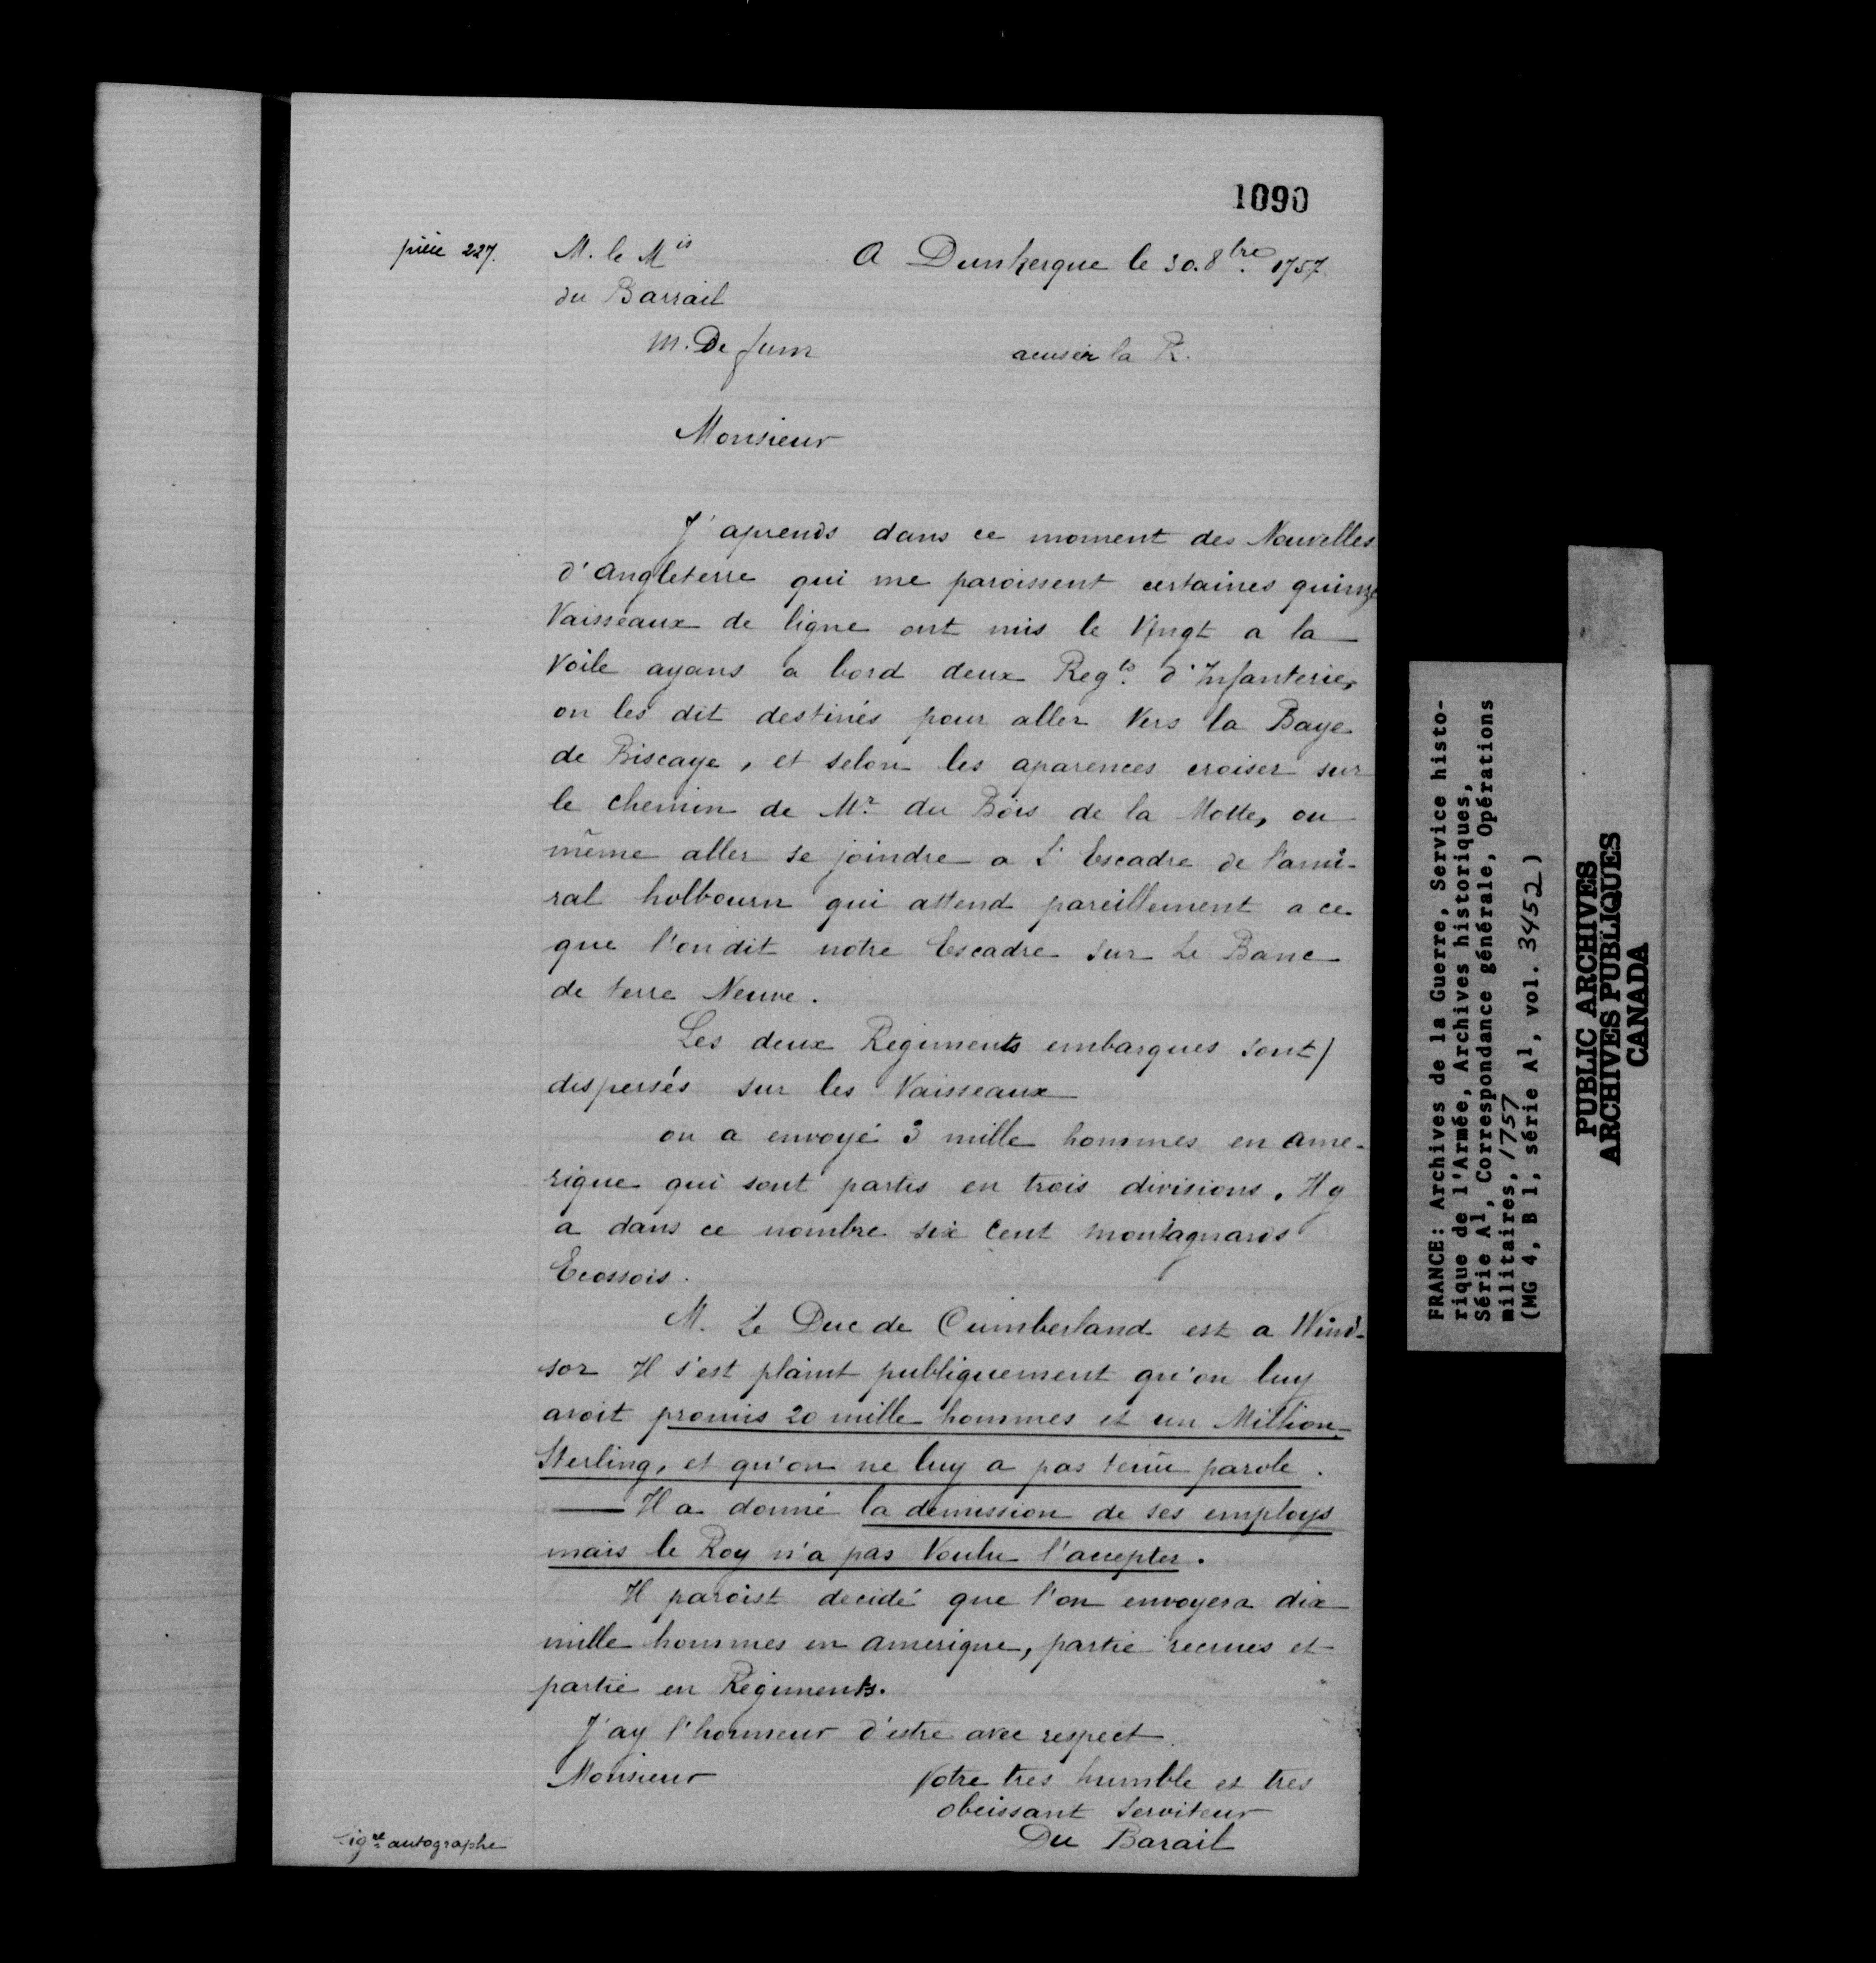 1090
pièce 227.
M. le Mis
du Barrail
A Dunkerque le 30. 8bre 1757
M. De fum
acuser la R.
Monsieur
J'aprends dans ce moment des Nouvelles
d'Angleterre qui me paroissent certaines quinze
Vaisseaux de ligne ont mis le Vingt a la
Voile ayans a bord deux Regts. d'Infanterie,
on les dit destinés pour aller Vers la Baye
de Biscaye, et selon les aparences croiser sur
le chemin de Mr. du Bois de la Motte, ou
même aller se joindre a L'Escadre de l'ami-
ral holbourn qui attend pareillement a ce
que l'on dit notre Escadre sur Le Banc
de terre Neuve.
Les deux Regiments embarques sont
dispersés sur les Vaisseaux
on a envoyé 3 mille hommes en ame-
rique qui sont partis en trois divisions. Il y
a dans ce nombre six Cent montagnards
Ecossois.
M. Le Duc de Cumberland est a Wind-
sor Il s'est plaint publiquement qu'on luy
avoit promis 20 mille hommes et un Million
Sterling, et qu'on ne luy a pas tenu parole.
Il a donné la demission de ses employs
mais le Roy n'a pas Voulu l'accepter.
Il paroist decidé que l'on envoyera dix
mille hommes en amerique, partie recrues et
partie en Regiments.
J'ay l'honneur d'estre avec respect
Monsieur
Votre tres humble et tres
obeissant Serviteur
Du Barail
Sigre autographe
FRANCE: Archives de la Guerre, Service histo-
rique de l'Armée, Archives historiques,
Série A1, Correspondance générale, Opérations
militaires, 1757
(MG 4, B 1, série A1, vol. 3452)
PUBLIC ARCHIVES
ARCHIVES PUBLIQUES
CANADA